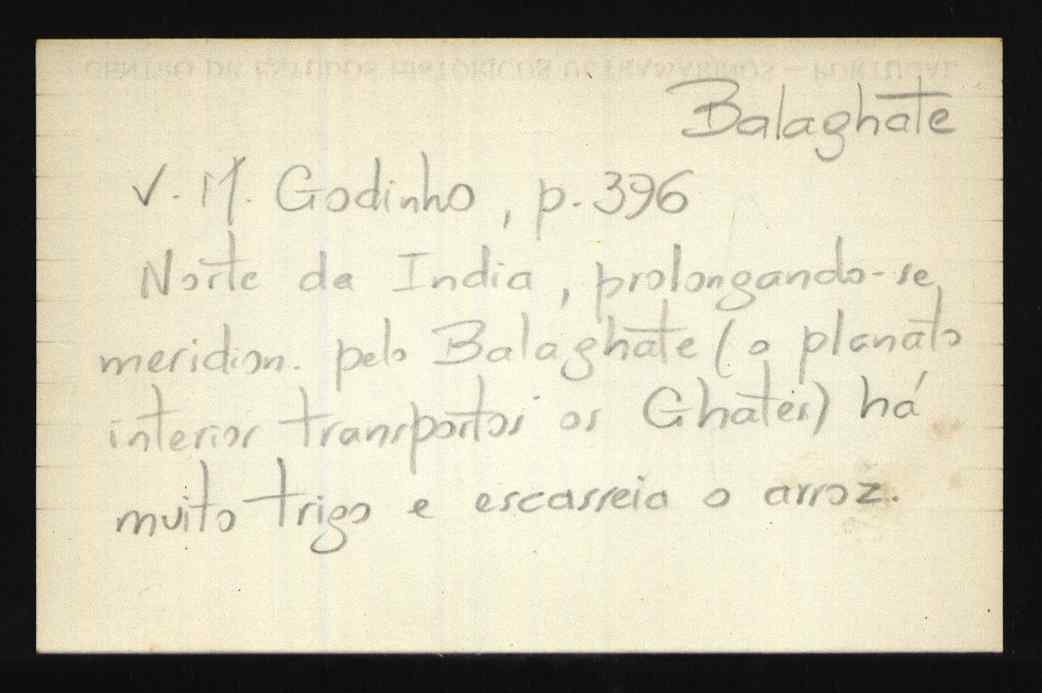 CENTRO DE ESTUDOS HISTÓRICOS ULTRAMARINOS — PORTUGAL
Balaghate
V. M. Godinho, p. 396
Norte da India, prolongando-se
meridion. pelo Balaghate (o planalto
interior transpostos os Ghates) há
muito trigo e escasseia o arroz.